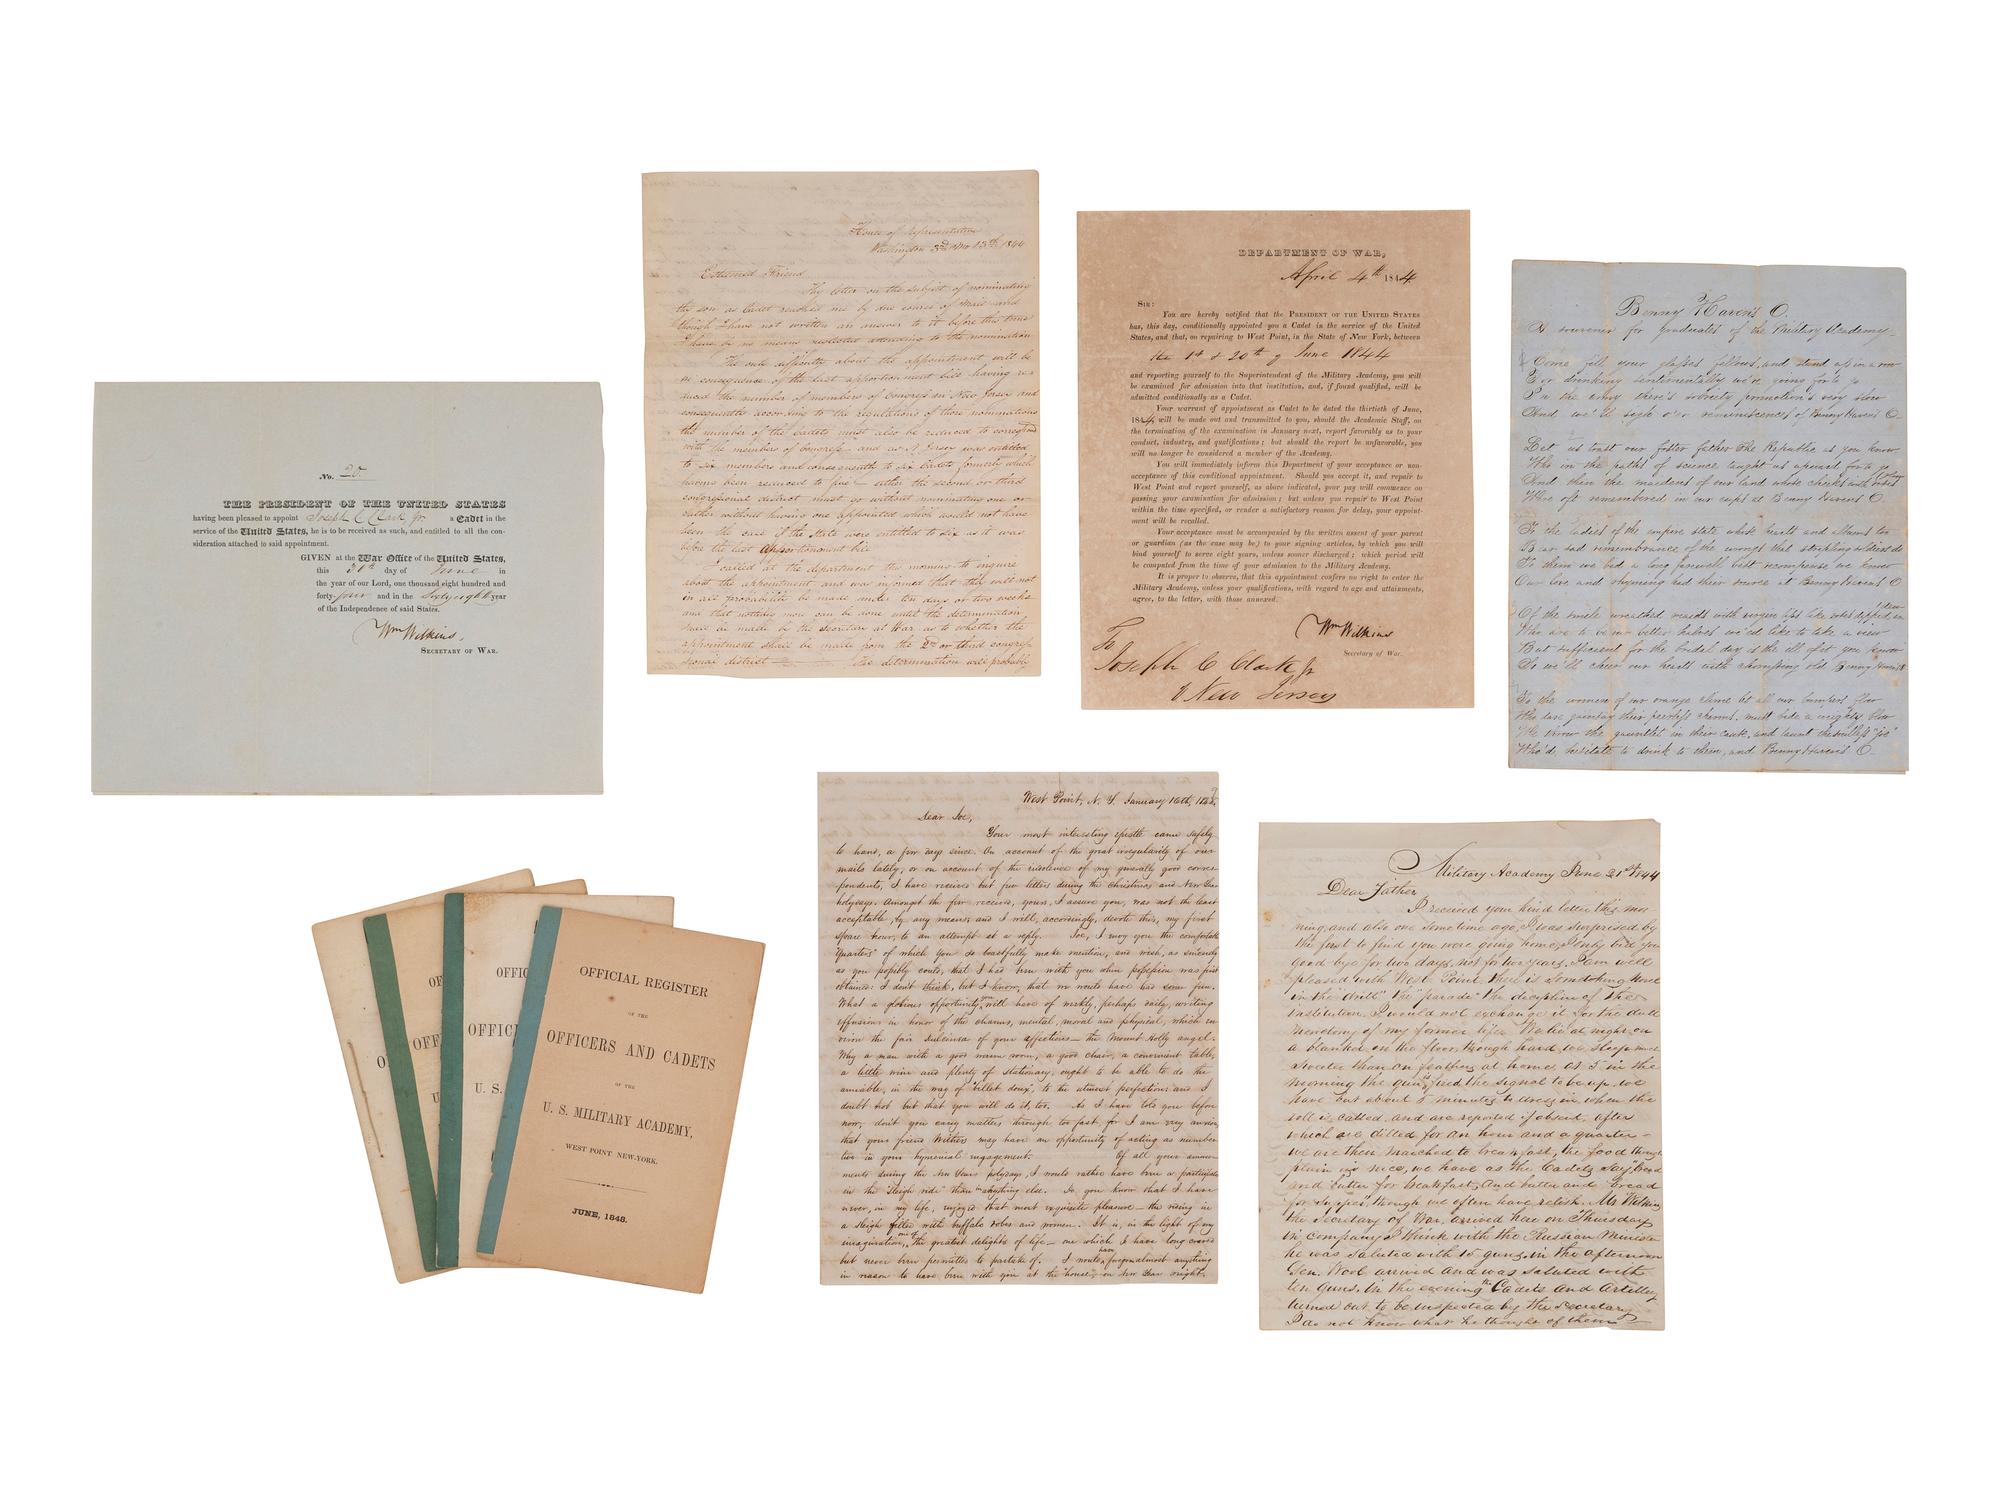 No. 20.
THE PRESIDENT OF THE UNITED STATES
having been pleased to appoint Joseph C Clark Jr. a Cadet in the
service of the United States, he is to be received as such, and entitled to all the con-
sideration attached to said appointment.
GIVEN at the War Office of the United States,
this 30th day of June in
the year of our Lord, one thousand eight hundred and
forty-four and in the Sixty eighth year
of the Independence of said States.
Wm Wilkins,
SECRETARY OF WAR.
House of Representatives
Washington 3rd Mo 13th 1844
Esteemed Friend
Thy letter on the subject of nominating
thy son as Cadet reached me by due course of mail and
though I have not written an answer to it before this time
I have by no means neglected attending to the nomination
The only difficulty about the appointment will be
in consequence of the last apportionment bill having re-
duced the number of members of Congress in New Jersey and
consequently according to the regulations of those nominations
the number of the Cadets must also be reduced to correspond
with the members of Congress and as N Jersey was entitled
to six members and consequently to six Cadets formerly which
having been reduced to five - either the second or third
congressional district must go without nominating one or
rather without having one appointed which would not have
been the case if the state were entitled to six as it was
before the last apportionment bill
I called at the department this morning to inquire
about the appointment and was informed that they will not
in all probability be made under ten days or two weeks
and that nothing more can be done until the determination
made by the Secretary at War as to whether the
appointment shall be made from the 2nd or third congres-
sional district the determination will probably
DEPARTMENT OF WAR,
April 4th 1844
SIR:
You are hereby notified that the PRESIDENT OF THE UNITED STATES
has, this day, conditionally appointed you a Cadet in the service of the United
States, and that, on repairing to West Point, in the State of New York, between
the 1st & 20th of June 1844
and reporting yourself to the Superintendent of the Military Academy, you will
be examined for admission into that institution, and, if found qualified, will be
admitted conditionally as a Cadet.
Your warrant of appointment as Cadet to be dated the thirtieth of June,
1844, will be made out and transmitted to you, should the Academic Staff, on
the termination of the examination in January next, report favorably as to your
conduct, industry, and qualifications; but should the report be unfavorable, you
will no longer be considered a member of the Academy.
You will immediately inform this Department of your acceptance or non-
acceptance of this conditional appointment. Should you accept it, and repair to
West Point and report yourself, as above indicated, your pay will commence on
passing your examination for admission; but unless you repair to West Point
within the time specified, or render a satisfactory reason for delay, your appoint-
ment will be recalled.
Your acceptance must be accompanied by the written assent of your parent
or guardian (as the case may be) to your signing articles, by which you will
bind yourself to serve eight years, unless sooner discharged; which period will
be computed from the time of your admission to the Military Academy.
It is proper to observe, that this appointment confers no right to enter the
Military Academy, unless your qualifications, with regard to age and attainments,
agree, to the letter, with those annexed.
Wm Wilkins
Secretary of War.
To
Joseph C Clark Jr
New Jersey
Benny Haven's O.
A souvenir for graduates of the Military Academy
Come fill your glasses fellows, and stand up in a row
For drinking sentimentally we're going for to go
In the army there's sobriety promotion's very slow
And we'll sigh o'er reminiscences of Benny Haven's O.
Let us trust our foster father the Republic as you know
Who in the paths of science taught us a period for to go
And then the maidens of our land whose cheeks with roses glow
Were oft remembered in our cups at Benny Haven's O.
To the ladies of the empire state whose hearts and albums too
Bear sad remembrance of the wrongs that stripling soldiers do
To them we bid a long farewell best recompense we know
Our love and rhyming had their source at Benny Haven's O
Of the smile wreathed maids with virgin lips like roses dipped in dew
Who are to be our better halves we'd like to take a view
But sufficient for the bridal day is the ill of it you know
So we'll cheer our hearts with chorusing old Benny Haven's O
To the women of our orange clime let all our bumpers flow
Who dare gainsay their peerless charms, must bide a weighty blow
We throw the gauntlet in their cause, and taunt the soulless "foe"
Who'd hesitate to drink to them, and Benny Haven's O.
OFFICIAL REGISTER
OF THE
OFFICERS AND CADETS
OF THE
U. S. MILITARY ACADEMY,
WEST POINT NEW-YORK.
JUNE, 1848.
West Point, N. Y. January 16th,
Dear Joe,
Your most interesting epistle came safely
to hand, a few days since. On account of the great irregularity of our
mails lately, or on account of the indolence of my generally good corres-
pondents, I have received but few letters during the Christmas and New Year
holydays. Amongst the few received, yours, I assure you, was not the least
acceptable, by any means; and I will, accordingly, devote this, my first
spare hour, to an attempt at a reply. Joe, I envy you the comfortable
quarters" of which you so boastfully make mention, and wish, as sincerely
as you possibly could, that I had been with you when possession was first
obtained: I don't think, but I know, that we would have had some fun.
What a glorious opportunity you will have of weekly, perhaps daily, writing
effusions in honor of the charms, mental, moral and physical, which en-
viron the fair dulcinea of your affections — the Mount Holly angel.
Why a man with a good warm room, a good chair, a convenient table,
a little wine and plenty of stationary, ought to be able to do the
amiable, in the way of "billet doux", to the utmost perfection; and I
doubt not but that you will do it, too. As I have told you before
now, don't you carry matters through too fast, for I am very anxious
that your friend Withers may have an opportunity of acting as number
two in your hymenial engagement. Of all your amuse-
ments during the New Years holydays, I would rather have been a participator
in the "sleigh ride" than anything else. Do you know that I have
never, in my life, enjoyed that most exquisite pleasure — the riding in
a sleigh filled with buffalo robes and women. It is, in the light of my
imagination, one of the greatest delights of life — one which I have long craved
but never been permitted to partake of. I would have foregone almost anything
in reason to have been with you at the house, on New Year night.
Military Academy June 21st 1844
Dear Father
I received your kind letter this mor
ning, and also one some time ago, I was surprised by
the first to find you were going home, I only bid you
good bye for two days, not for two years. I am well
pleased with West Point, there is something novel
in the "drill" the "parade" the decipline of the
institution. I would not exchange it for the dull
monotony of my former life. We lie at night on
a blanket on the floor, though hard, we sleep much
sweeter than on feathers at home. at 5 in the
morning the gun is fired the signal to be up, we
have but about 5 minutes to dress in when the
roll is called, and are reported if absent, after
which are drilled for an hour and a quarter -
we are then marched to breakfast, the food though
plain is nice, we have as the Cadets say, bread
and butter for breakfast, and butter and bread
for supper," though we often have relish. Mr Wilkins
the Secretary of War, arrived here on Thursday
in company I think with the Russian Minister
he was saluted with 15 guns, in the afternoon
Gen. Wool arrived and was saluted with
ten guns. In the evening the Cadets and Artillery
turned out to be inspected by the secretary
I do not know what he thought of them